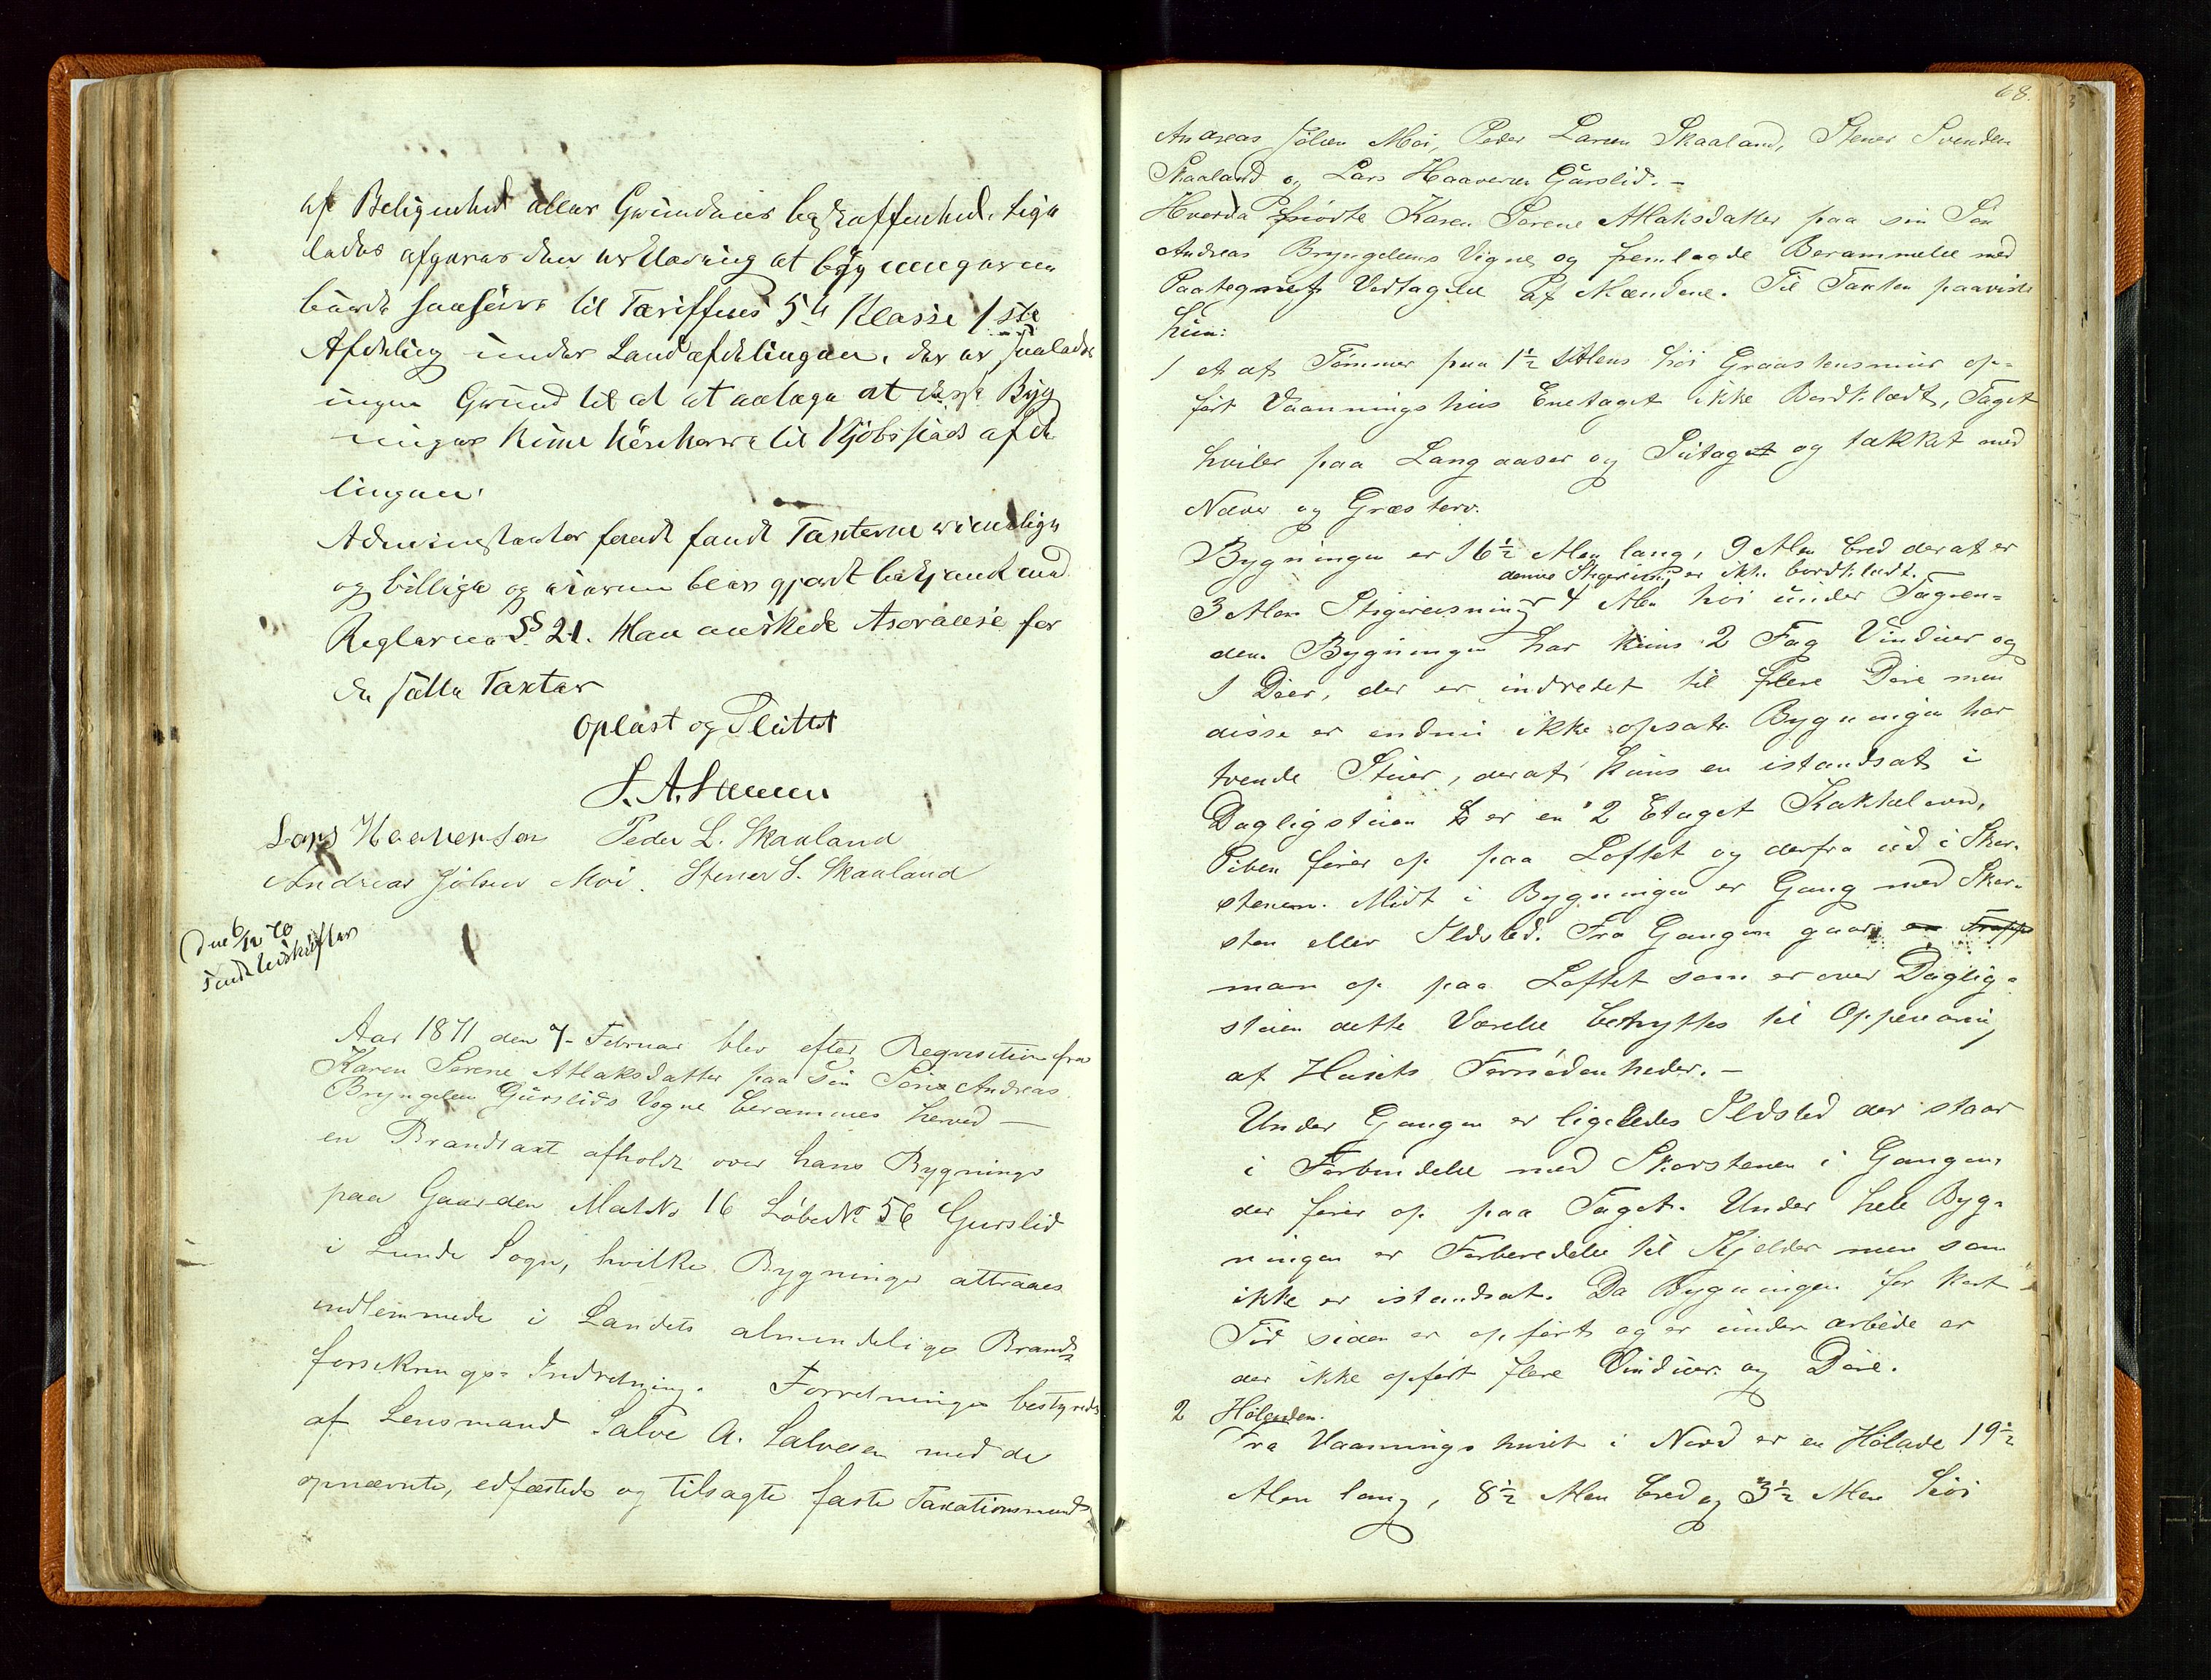 af Beligenhed eller Grundens beskaffenhed. Lige
ledes afgaves den erklæring at bygningerne
burde henføres til Tariffens 5te Klasse 1ste
Afdeling under Landafdelingen, der er saaledes
ingen Grund til at antage at disse Byg
ninger kunne henhøre til Kjøbstads afde
lingen.
Administrator fandt Taxterne rimelige
og billige og eieren blev gjordt bekjendt med
Reglerne § 21. Man ønskede Asorance for
de satte Taxter
Oplæst og Sluttet
S. A. Salvesen
Lars Haavensen Peder L. Skaaland
Andreas Johsen Moi. Stener S. Skaaland
Den 6/12 70
sendt Udskrifter
Aar 1871 den 7. Februar blev efter Requisition fra
Karen Serene Atlaksdatter paa sin Søns Andreas
Bryngelsen Gurslids Vegne berammes herved —
en Brandtaxt afholdt over hans Bygninger
paa Gaarden MatNo 16 LøbeNo 56 Gurslid
i Lunde Sogn, hvilke Bygninger attraaes
indlemmede i Landets almindelige Brand-
forsikrings-Indretning. Forretningen bestyredes
af Lensmand Salve A. Salvesen med de
opnævnte, edfæstede og tilsagte faste Taxationsmænd
68.
Andreas Johsen Moi, Peder Larsen Skaaland, Stener Svendsen
Skaaland og Lars Haavensen Gurslid. —
Hvorda mødte Karen Serene Atlaksdatter paa sin Søn
Andreas Bryngelsens Vegne og fremlagde Berammelse med
Paategnet Vedtagelse af Mændene. Til Taxten paaviste
hun:
1 et af Tømmer paa 1½ Alens høi Graastensmur op-
ført Vaanningshus Enetaget ikke Bordklædt, Taget
hviler paa Langaaser og Sutaget og takket med
Næver og Græstorv.
Bygningen er 16½ Alen lang, 9 Alen bred deraf er
denne Stigereisning er ikke bordklædt.
3 Alen Stigereisning 4 Alen høi under Tagren-
den. Bygningen har kuns 2 Fag Vinduer og
1 Døer, der er indredet til flere Døre men
disse er endnu ikke opsate. Bygningen har
tvende Stuer, deraf kuns en istandsat i
Dagligstuen er en 2 Etaget Kakkelovn,
Piben fører op paa Loftet og derfra ud i Skor-
stenen. Midt i Bygningen er Gang med Skor-
sten eller Ildsted. Fra Gangen gaar en Trappe
man op paa Loftet som er over Daglig-
stuen dette Værelse benyttes til Oppevaring
af Husets Fornødenheder. —
Under Gangen er ligeledes Ildsted der staar
i Forbindelse med Skorstenen i Gangen,
der fører op paa Taget. Under hele Byg-
ningen er Forberedelse til Kjelder men som
ikke er istandsat. Da Bygningen for kort
Tid siden er opført og er under arbeide er
der ikke opført flere Vinduer og Døre.
2 Høladen.
Fra Vaanningshuset i Nord er en Hølade 19½
Alen lang, 8½ Alen bred og 3½ Alen høi